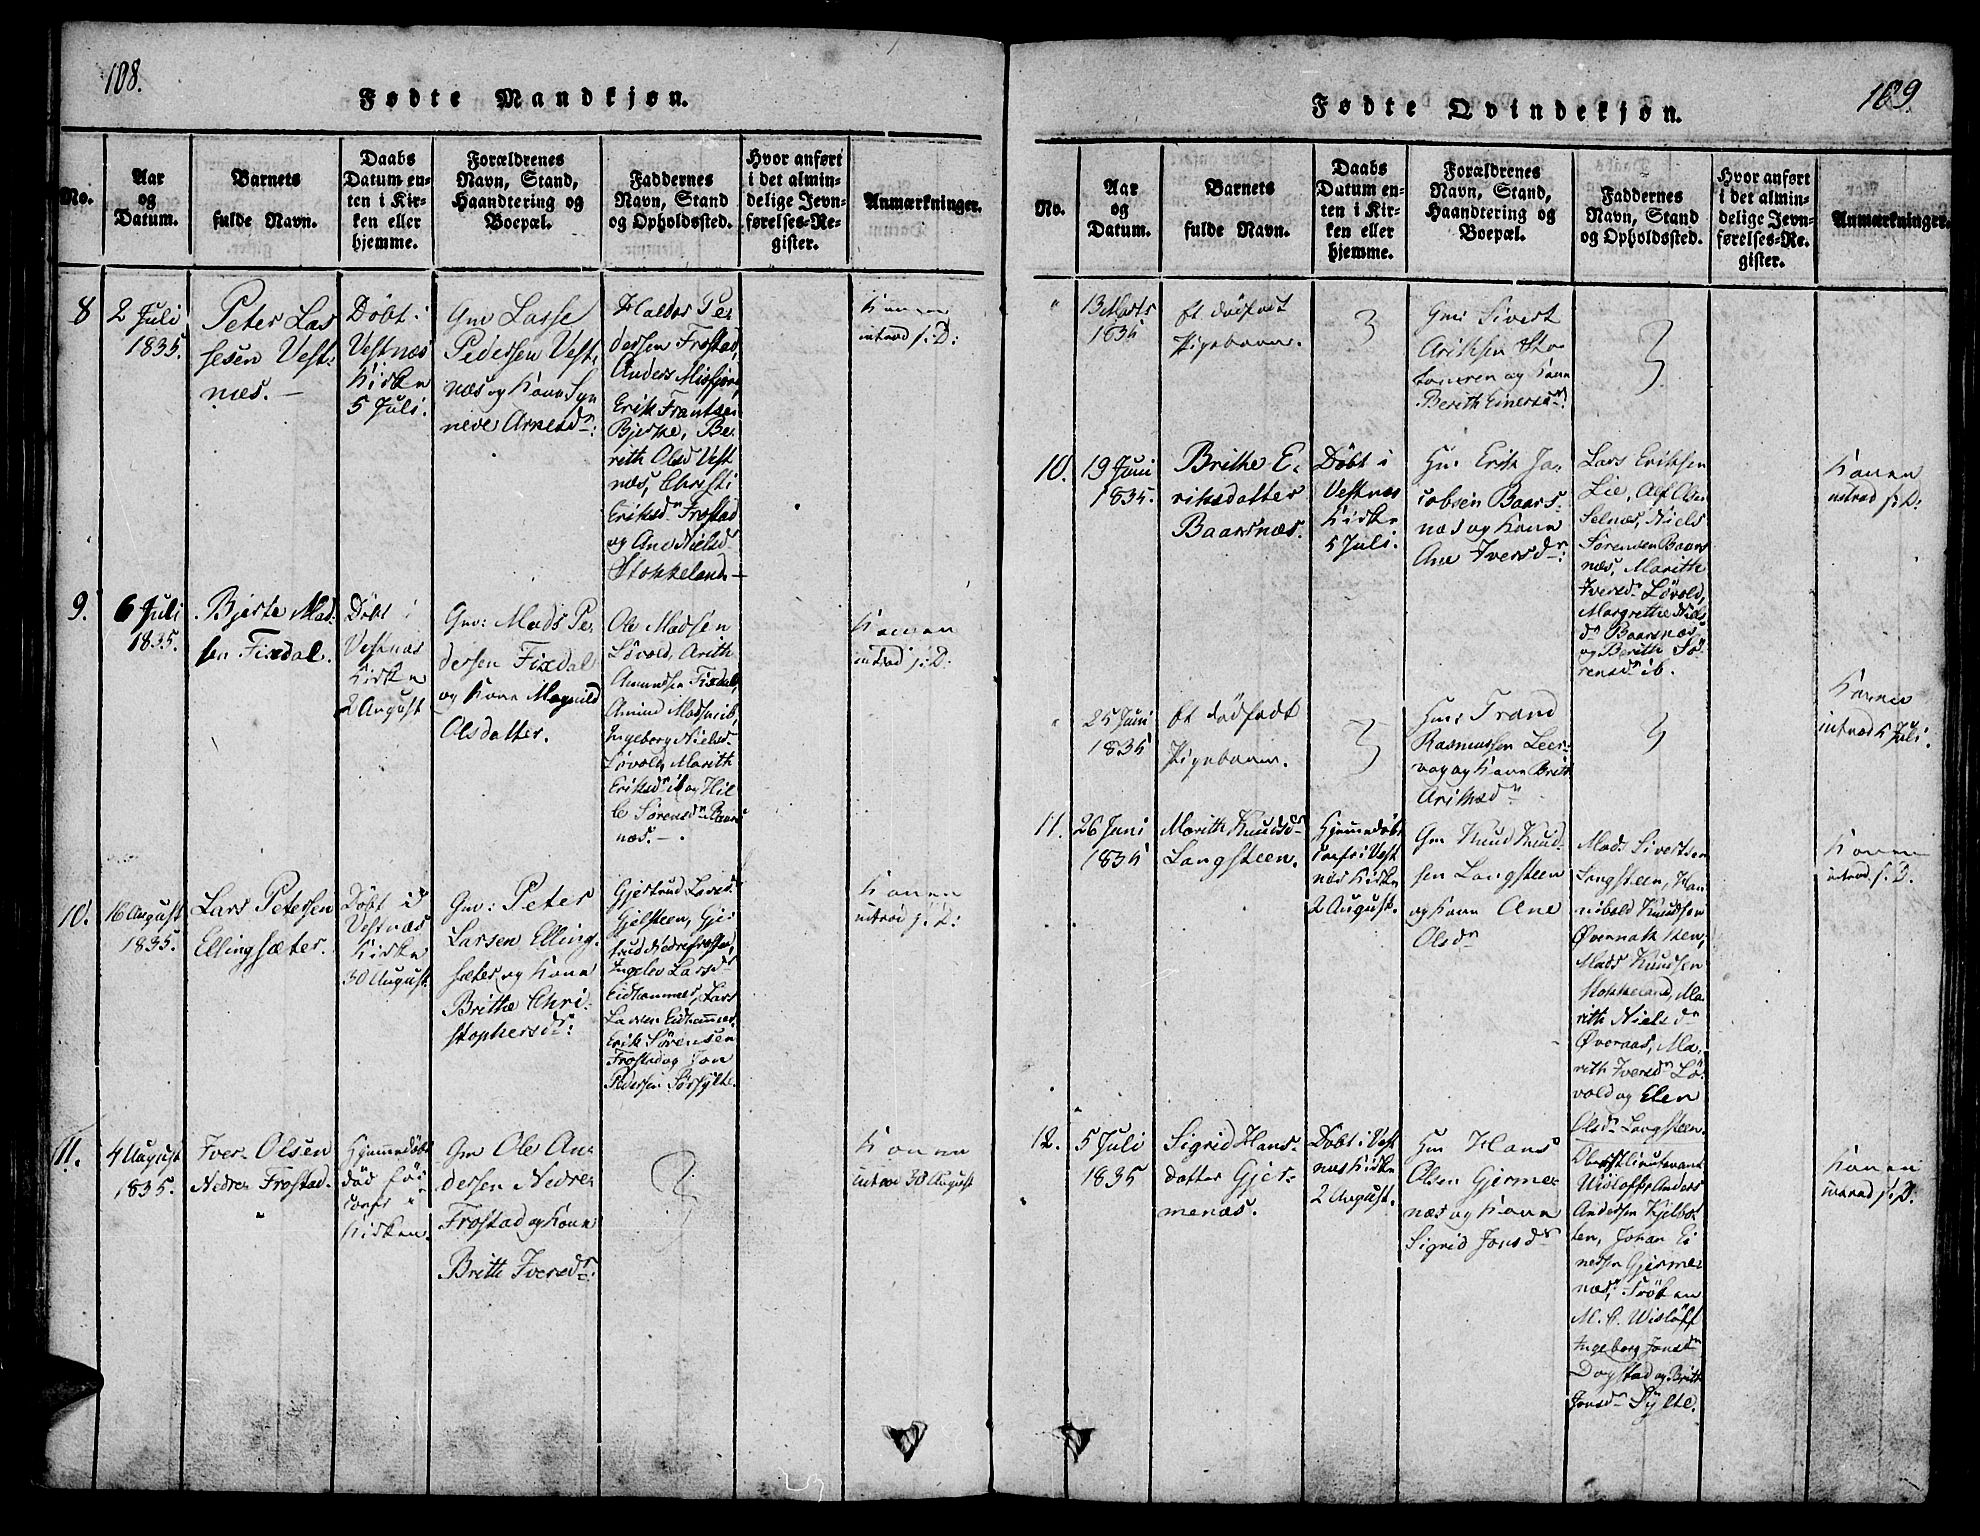 108.
Fødte Mandkjøn.
No.
Aar
og
Datum.
Barnets
fulde Navn.
Daabs
Datum en-
ten i Kir-
ken eller
hjemme.
Forældrenes
Navn, Stand,
Haandtering og
Boepæl.
Faddernes
Navn, Stand
og Opholdssted.
Hvor anført
i det almin-
delige Jevn-
førelses-Re-
gister.
Anmærkninger.
8
2 Juli
1835.
Peter Las
sesen Vest-
næs. –
Døbt i
Vestnæs
Kirke
5 Juli.
Gm Lasse
Pedersen Vest,
næs og Kone Syn
neve Arnesdr:
Haldor Pe-
dersen Frostad,
Anders Misfjord,
Erik Frantsen
Bjerke, Be-
rith Olsd Vest
næs, Christi
Eriksdr Frostad
og Ane Nielsd
Stokkeland –
Konen
introd s: D:
9.
6 Juli
1835.
Bjerte Mad-
sen Fixdal.
Døbt i
Vestnæs
Kirke
2 August
Gm: Mads Pe-
dersen Fixdal
og Kone Magnild
Olsdatter.
Ole Madsen
Løvold, Arith
Amundsen Fixdal,
Amund Madsen ib,
Ingeborg Nielsd.
Løvold, Marith
Eriksdr ib og
Sørensdr Baars
næs. –
Konen
introd s: D:
10.
16 August
1835.
Lars Petersen
Ellingsæter.
Døbt i
Vestnæs
Kirke
30 August.
Gm: Peter
Larsen Elling-
sæter og Kone
Brithe Chri-
stophersdr:
Gjertrud Larsd.
Gjelsteen, Gje-
trud Nedrefrostad,
Ingelev Larsdr
Eidhammer, Lars
Larsen Eidhammer,
Erik Sørensen
Frostad og Jon
Pedersen Sørsylte.
Konen
introd s: D:
11.
4 August
1835.
Iver Olsen
Nedre Frostad.
Hjemmedøbt
død før
conf: i
Kirken.
Gm Ole An-
dersen Nedre
Frostad og Kone
Brith Iversdr:
Konen
introd 30 August
109.
Fødte Qvindekjøn.
No.
Aar
og
Datum.
Barnets
fulde Navn.
Daabs
Datum en-
ten i Kir-
ken eller
hjemme.
Forældrenes
Navn, Stand,
Haandtering og
Boepæl.
Faddernes
Navn, Stand
og Opholdssted.
Hvor anført
i det almin-
delige Jevn-
førelses-Re-
gister.
Anmærkninger.
"
13 Marts
1835
Et dødfødt
Pigebarn.
Gm: Sivert
Ariksen
og Kone
Berith Einersdr:
10.
19 Juni
1835.
Brithe E-
riksdatter
Baarsnæs.
Døbt i
Vestnæs
Kirke
5 Juli.
Gm: Erik Ja-
cobsen Baars-
næs og Kone
Ane Iversdr:
Lars Eriksen
Lie, Alf Olsen
Selnæs, Niels
Sørensen Baars
næs, Marith
Iversdr Løvold,
Margrethe Niels
dr Baarsnæs
og Berith Sø-
rensdr ib.
Konen
introd s: D:
"
25 Juni
1835
Et dødfødt
Pigebarn.
Gm: Trond
Rasmussen Leer-
vog og Kone Brith
Ariksdr
Konen
introd 5 Juli.
11.
26 Juni
1835
Marith Knudsdr
Langsteen.
Hjemmedøbt
conf: i Vest
næs Kirke
2 August.
Gm Knud Knud-
sen Langsteen
og Kone Ane
Olsdr
Mads Sivertsen
Langsteen, Han
nibald Knudsen
Øvernakkken,
Mads Knudsen
Stokkeland, Ma-
rith Nielsdr
Øveraas, Ma-
rith Iversdr Lø-
vold og Elen
Olsdr Langsteen.
Konen
introd s: D.
12.
5 Juli
1835
Sigrid Hans-
datter Gjer-
menæs.
Døbt i Vest
næs Kirke
2 August.
Gm Hans
Olsen Gjerme-
næs og Kone
Sigrid Jonsdr
Oberstlieutenant
Wisløff, Anders
Andersen Kjelbot
ten, Johan Ei
nersen Gjerme-
næs, Frøken
M. C. Wisløff
Ingeborg Jonsdr
Dagstad og Brith
Jonsdr Sylte.
Konen
introd s: D.